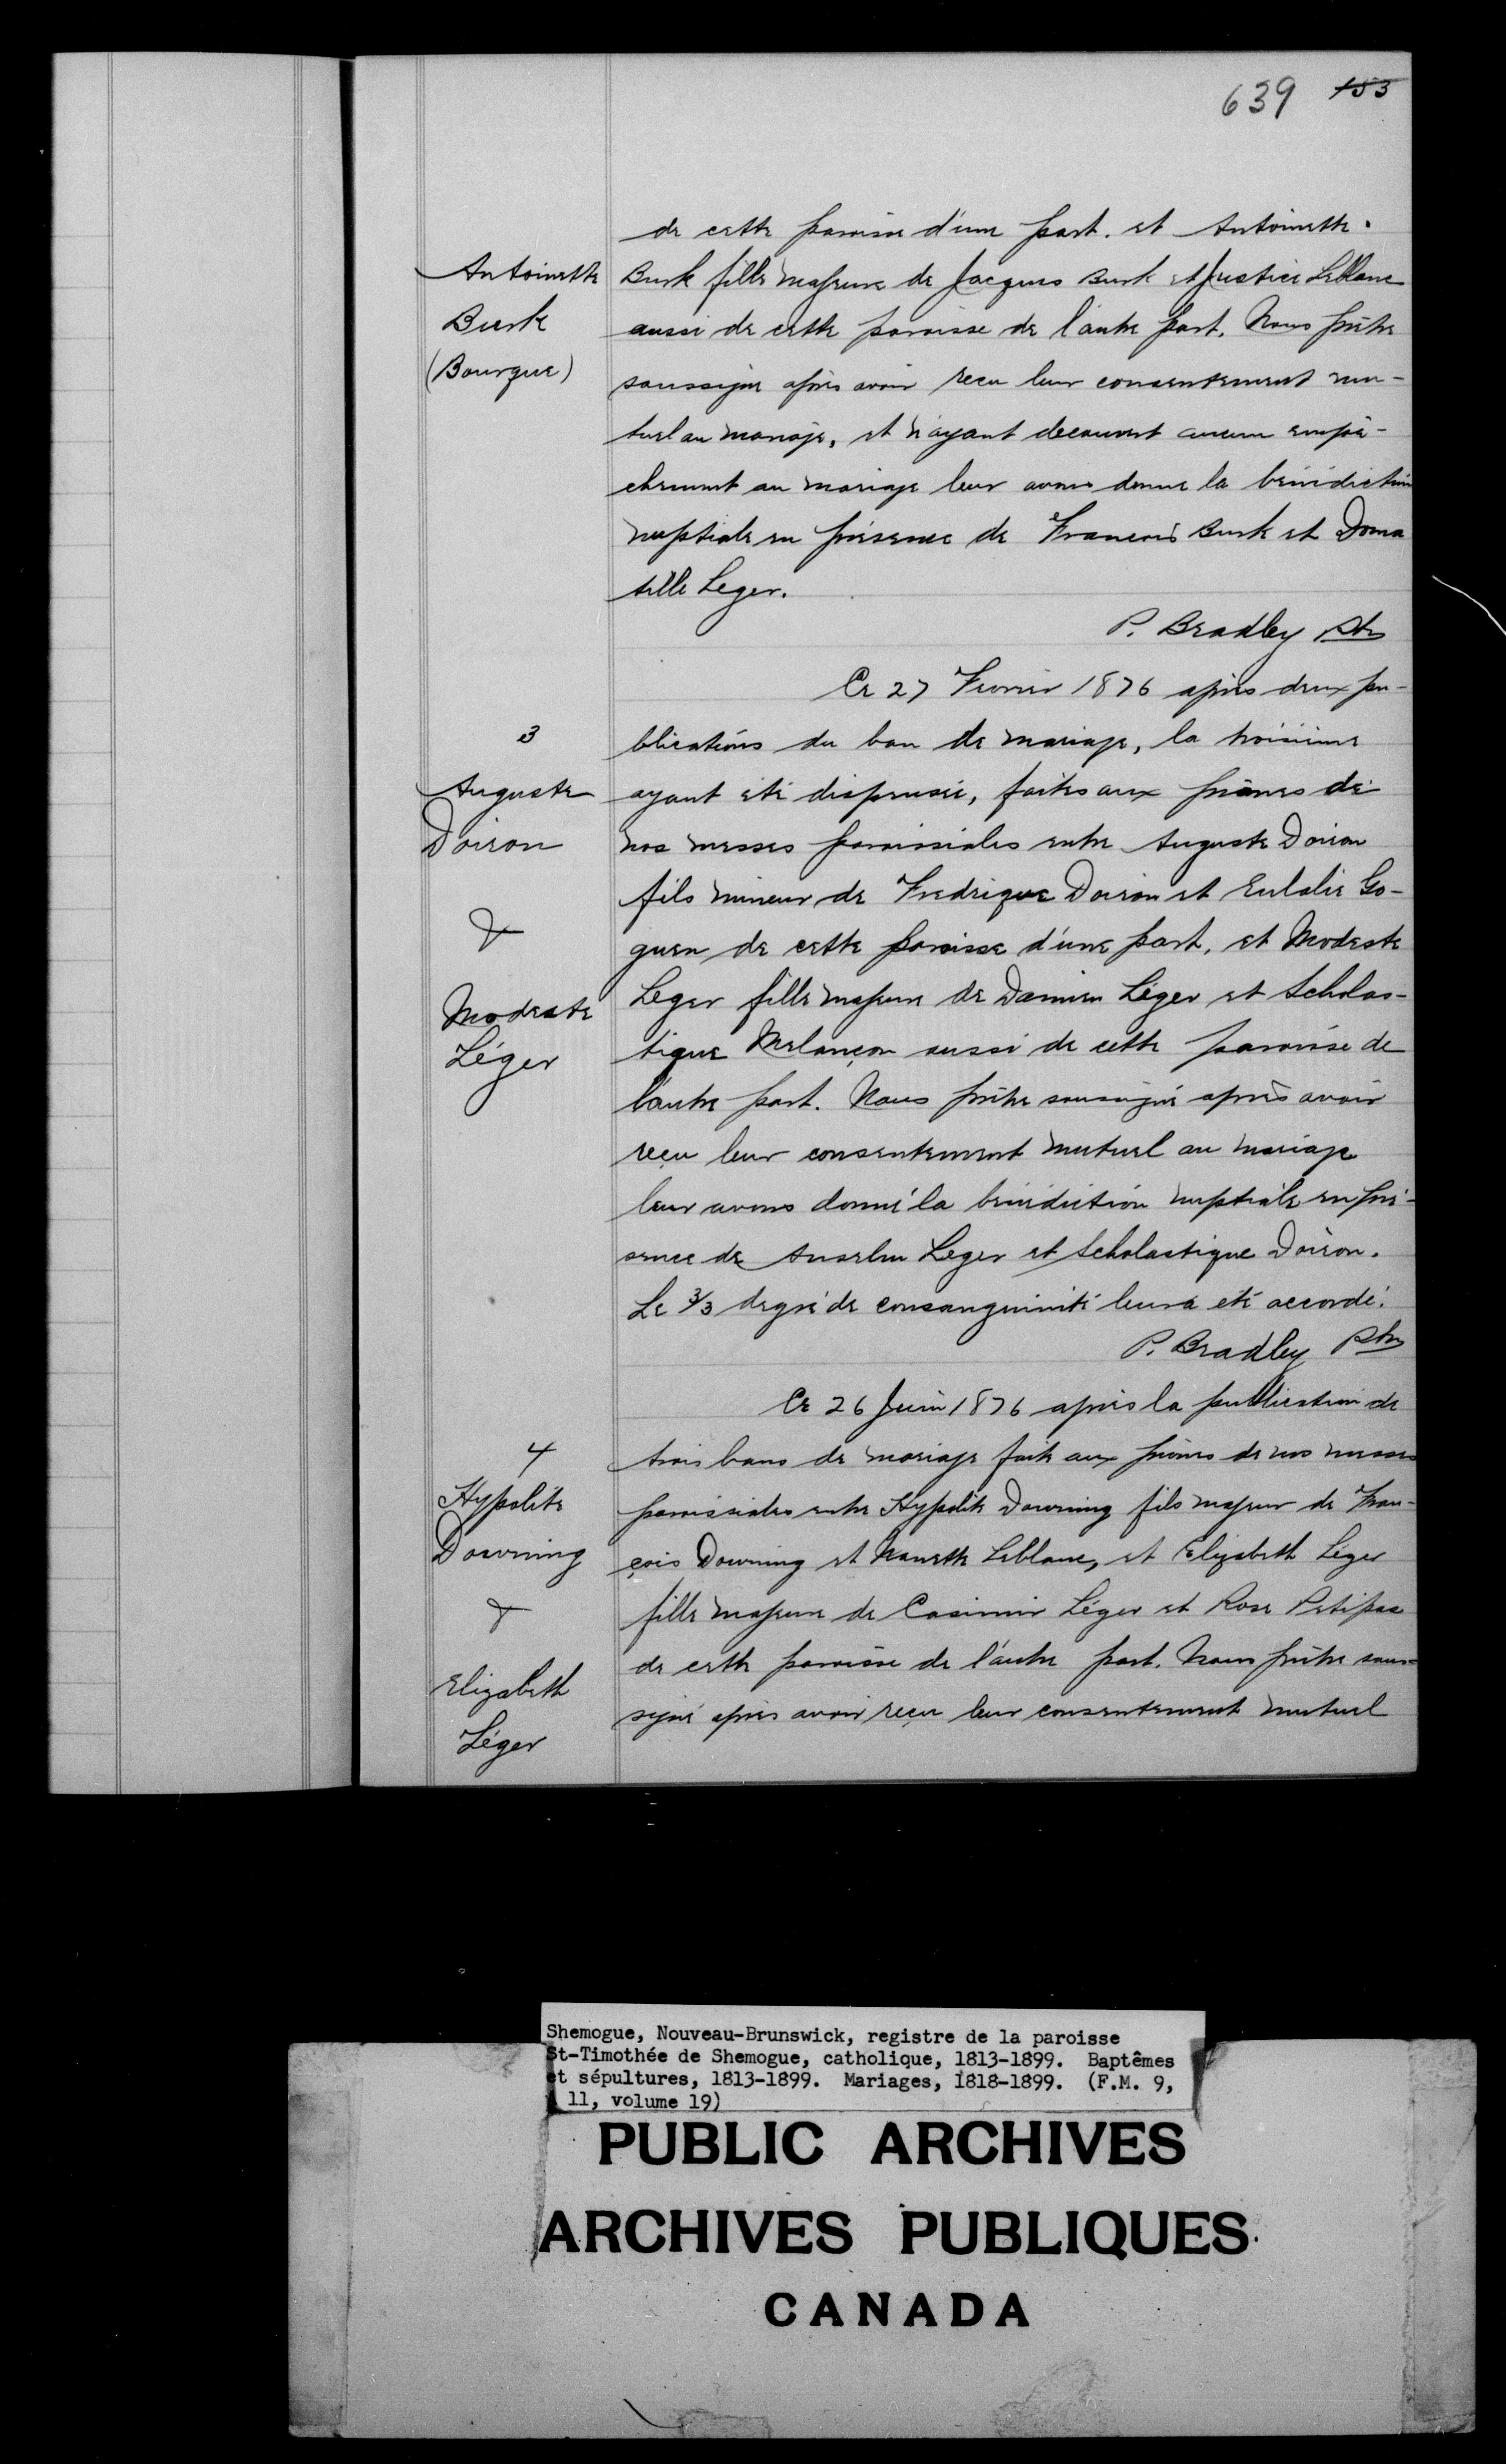 639 153
de cette paroisse d'une part. et Antoinette
Antoinette
Burk
(Bourque)
Burk fille majeure de Jacques Burk et Justice Leblanc
aussi de cette paroisse de l'autre part. Nous prêtre
soussigne après avoir recu leur consentement mu-
tuel au mariage, et n'ayant decouvert aucun empê-
chement au mariage leur avons donne la bénédiction
nuptiale en présence de François Burk et Doma
tille Leger.
P. Bradley Ptre
Ce 27 Fevrier 1876 après deux pu-
3
Auguste
Doiron
&
Modeste
Léger
blications du ban de mariage, la troisième
ayant été dispensée, faites aux prônes de
nos messes paroissiales entre Auguste Doiron
fils mineur de Fredrique Doiron et Eulalie Go-
guen de cette paroisse d'une part, et Modeste
Leger fille majeure de Damien Léger et Scholas-
tique Melançon aussi de cette paroisse de
l'autre part. Nous prêtre soussigné après avoir
reçu leur consentement mutuel au mariage
leur avons donné la bénédiction nuptiale en pré-
sence de Anselm Leger et Scholastique Doiron.
Le 3/3 degré de consanguinité leur a été accordé.
P. Bradley Ptre
Ce 26 Juin 1876 après la publication de
4
Hypolite
Downing
&
Elizabeth
Léger
trois bans de mariage fait aux prônes de nos messes
paroissiales entre Hypolite Downing fils majeur de Fran-
çois Downing et Nanette Leblanc, et Elizabeth Léger
fille majeure de Casimir Léger et Rose Petipas
de cette paroisse de l'autre part. Nous prêtre sous-
signé après avoir reçu leur consentement mutuel
Shemogue, Nouveau-Brunswick, registre de la paroisse
St-Timothée de Shemogue, catholique, 1813-1899. Baptêmes
et sépultures, 1813-1899. Mariages, 1818-1899. (F.M. 9,
11, volume 19)
PUBLIC ARCHIVES
ARCHIVES PUBLIQUES
CANADA